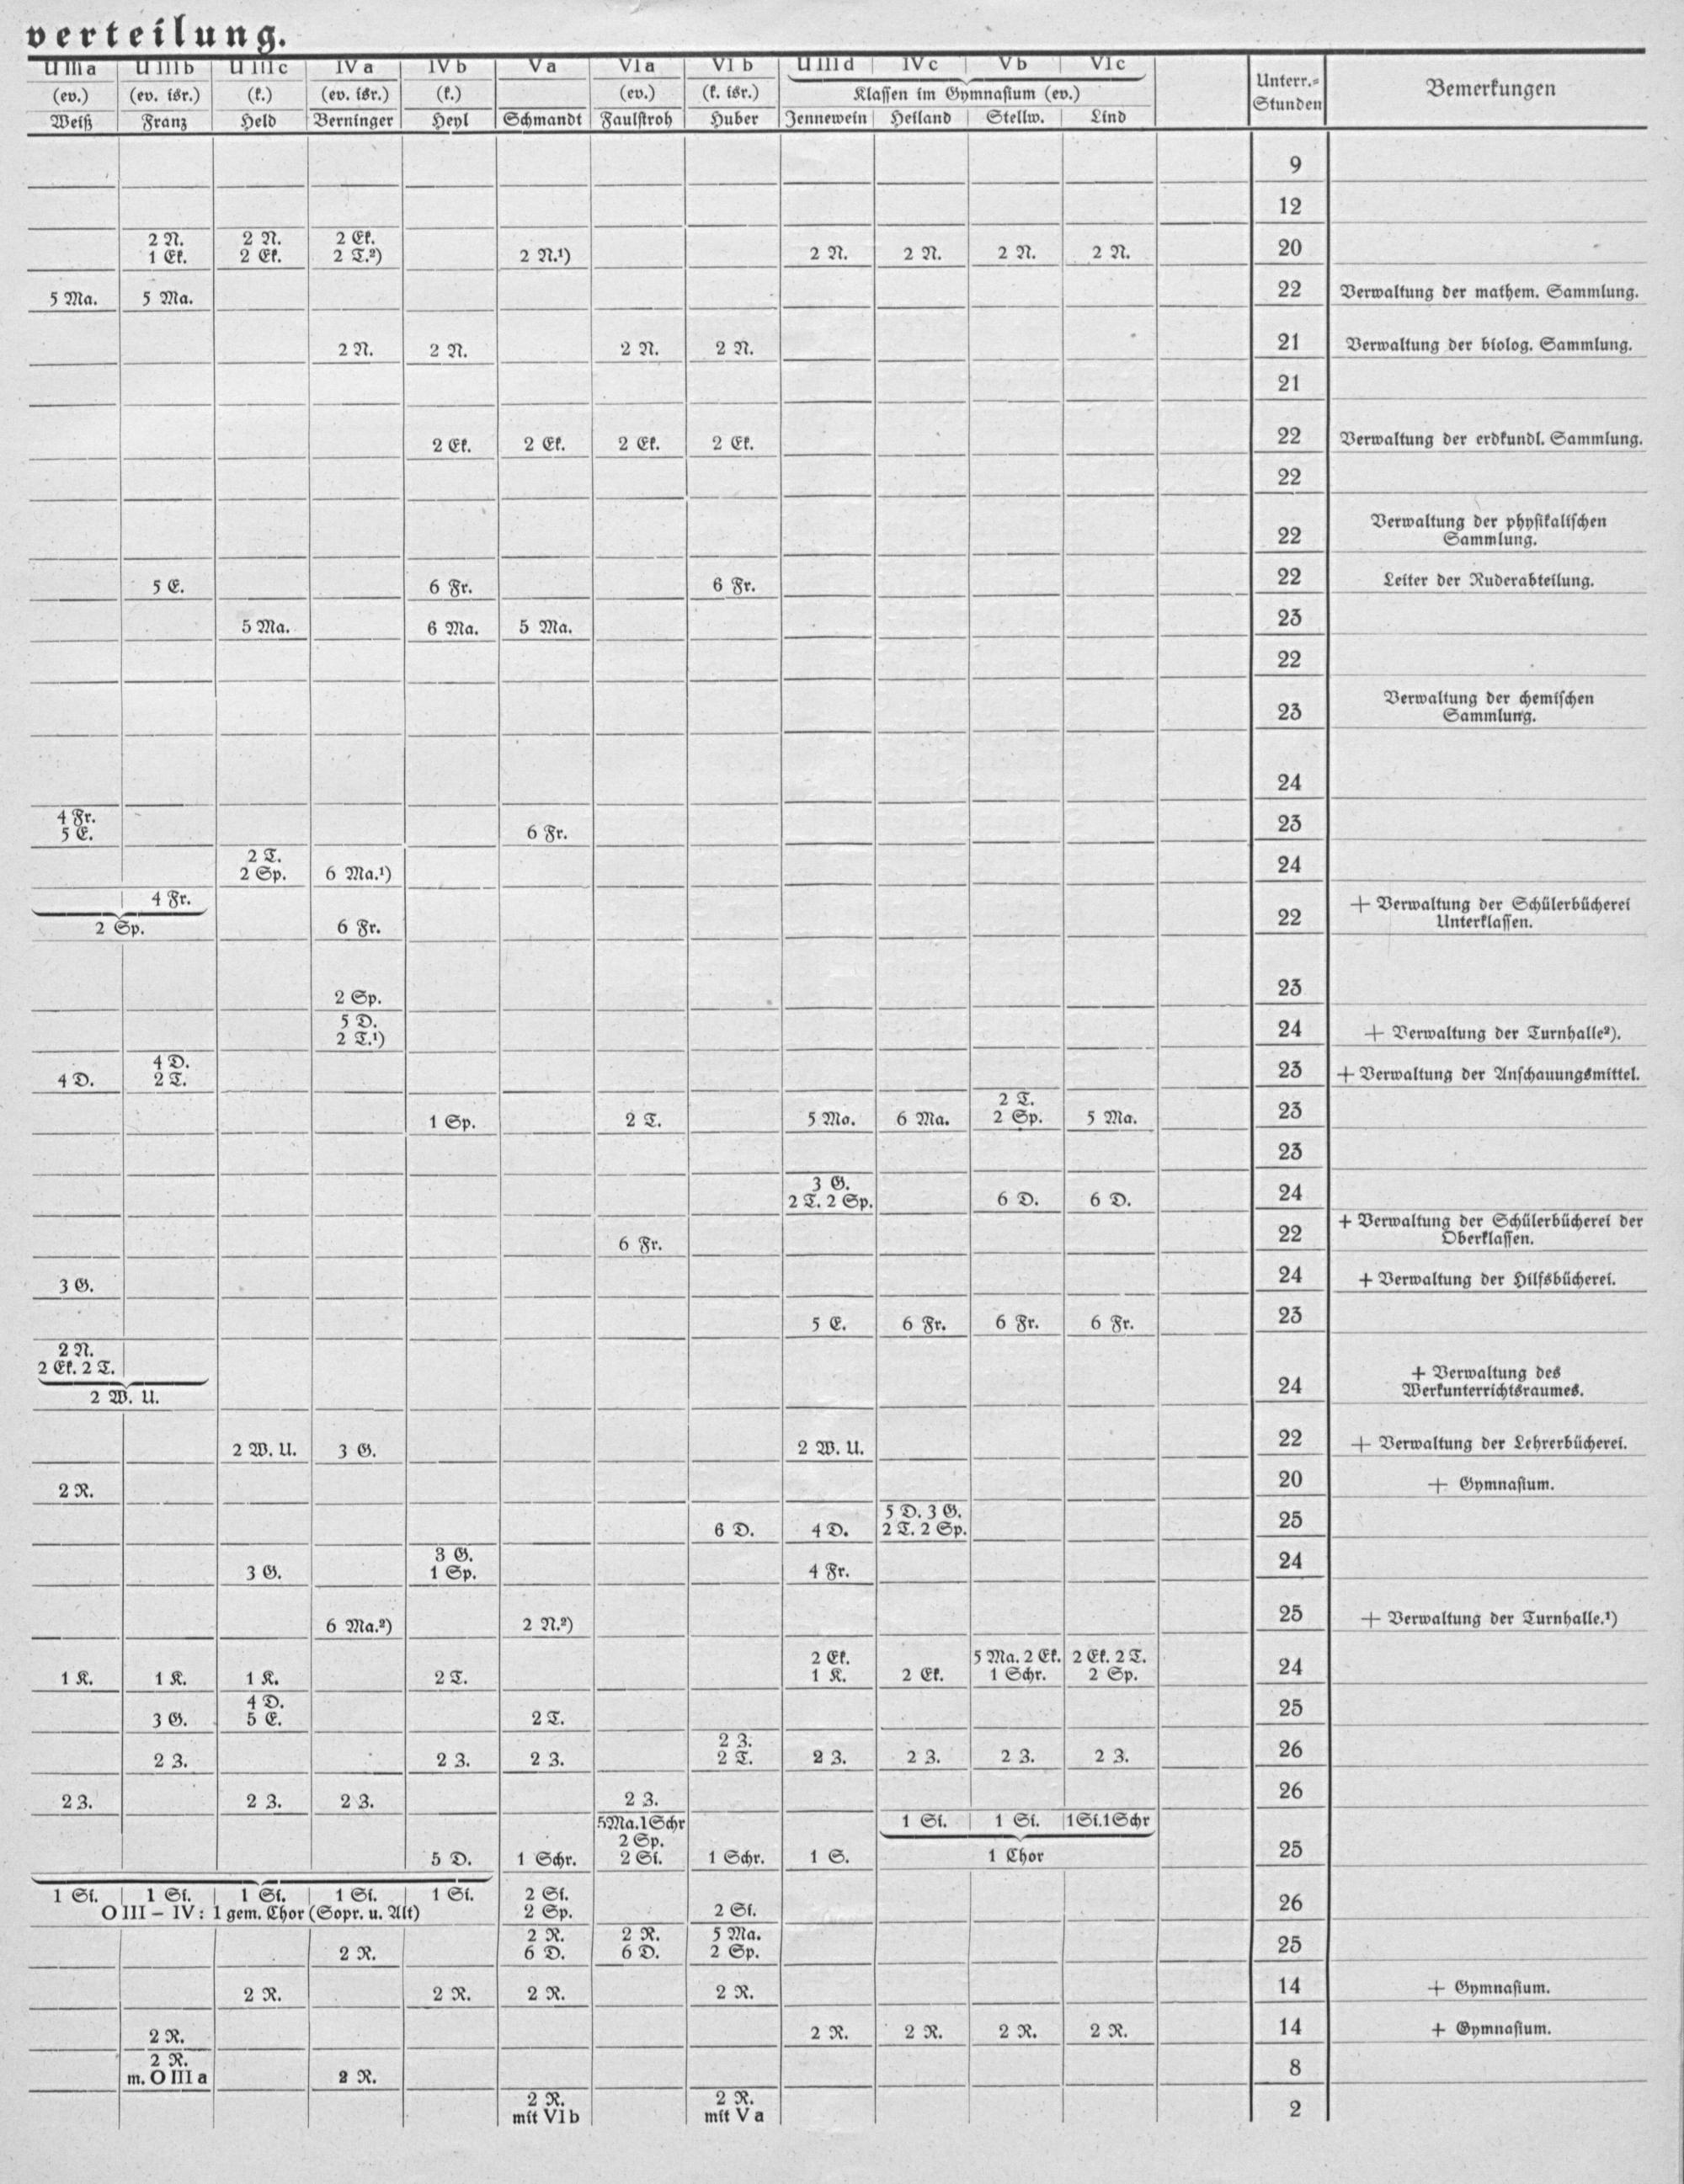 verteilung.
U III a U III b U III c IV a IV b V a VI a VI b U III d IV c V b VI c
(ev.) (ev. isr.) (k.) (ev. isr.) (k.) (ev.) (k. isr.) Klassen im Gymnasium (ev.) Unterr.-Stunden Bemerkungen
Weiß Franz Held Berninger Heyl Schmandt Faulstroh Huber Jennewein Heiland Stellw. Lind
9
12
2 N. 2 N. 2 Ek.
1 Ek. 2 Ek. 2 T.²) 2 N.¹) 2 N. 2 N. 2 N. 2 N. 20
5 Ma. 5 Ma. 22 Verwaltung der mathem. Sammlung.
2 N. 2 N. 2 N. 2 N. 21 Verwaltung der biolog. Sammlung.
21
2 Ek. 2 Ek. 2 Ek. 2 Ek. 22 Verwaltung der erdkundl. Sammlung.
22
Verwaltung der physikalischen
22 Sammlung.
5 E. 6 Fr. 6 Fr. 22 Leiter der Ruderabteilung.
5 Ma. 6 Ma. 5 Ma. 23
22
Verwaltung der chemischen
23 Sammlung.
24
4 Fr.
5 E. 6 Fr. 23
2 T.
2 Sp. 6 Ma.¹) 24
4 Fr. + Verwaltung der Schülerbücherei
2 Sp. 6 Fr. 22 Unterklassen.
2 Sp. 23
5 D.
2 T.¹) 24 + Verwaltung der Turnhalle²).
4 D.
4 D. 2 T. 23 + Verwaltung der Anschauungsmittel.
2 T.
1 Sp. 2 T. 5 Ma. 6 Ma. 2 Sp. 5 Ma. 23
23
3 G.
2 T. 2 Sp. 6 D. 6 D. 24
+ Verwaltung der Schülerbücherei der
6 Fr. 22 Oberklassen.
3 G. 24 + Verwaltung der Hilfsbücherei.
5 E. 6 Fr. 6 Fr. 6 Fr. 23
2 N.
2 Ek. 2 T. + Verwaltung des
2 W. U. 24 Werkunterrichtsraumes.
2 W. U. 3 G. 2 W. U. 22 + Verwaltung der Lehrerbücherei.
2 R. 20 + Gymnasium.
5 D. 3 G.
6 D. 4 D. 2 T. 2 Sp. 25
3 G.
3 G. 1 Sp. 4 Fr. 24
6 Ma.²) 2 N.²) 25 + Verwaltung der Turnhalle.¹)
2 Ek. 5 Ma. 2 Ek. 2 Ek. 2 T.
1 K. 1 K. 1 K. 2 T. 1 K. 2 Ek. 1 Schr. 2 Sp. 24
4 D.
3 G. 5 E. 2 T. 25
2 Z.
2 Z. 2 Z. 2 Z. 2 T. 2 Z. 2 Z. 2 Z. 2 Z. 26
2 Z. 2 Z. 2 Z. 2 Z. 26
5Ma.1Schr 1 Si. 1 Si. 1Si.1Schr
2 Sp.
5 D. 1 Schr. 2 Si. 1 Schr. 1 S. 1 Chor 25
1 Si. 1 Si. 1 Si. 1 Si. 1 Si. 2 Si.
O III – IV: 1 gem. Chor (Sopr. u. Alt) 2 Sp. 2 Si. 26
2 R. 2 R. 5 Ma.
2 R. 6 D. 6 D. 2 Sp. 25
2 R. 2 R. 2 R. 2 R. 14 + Gymnasium.
2 R. 2 R. 2 R. 2 R. 2 R. 14 + Gymnasium.
2 R.
m. O III a 2 R. 8
2 R. 2 R.
mit VI b mit V a 2